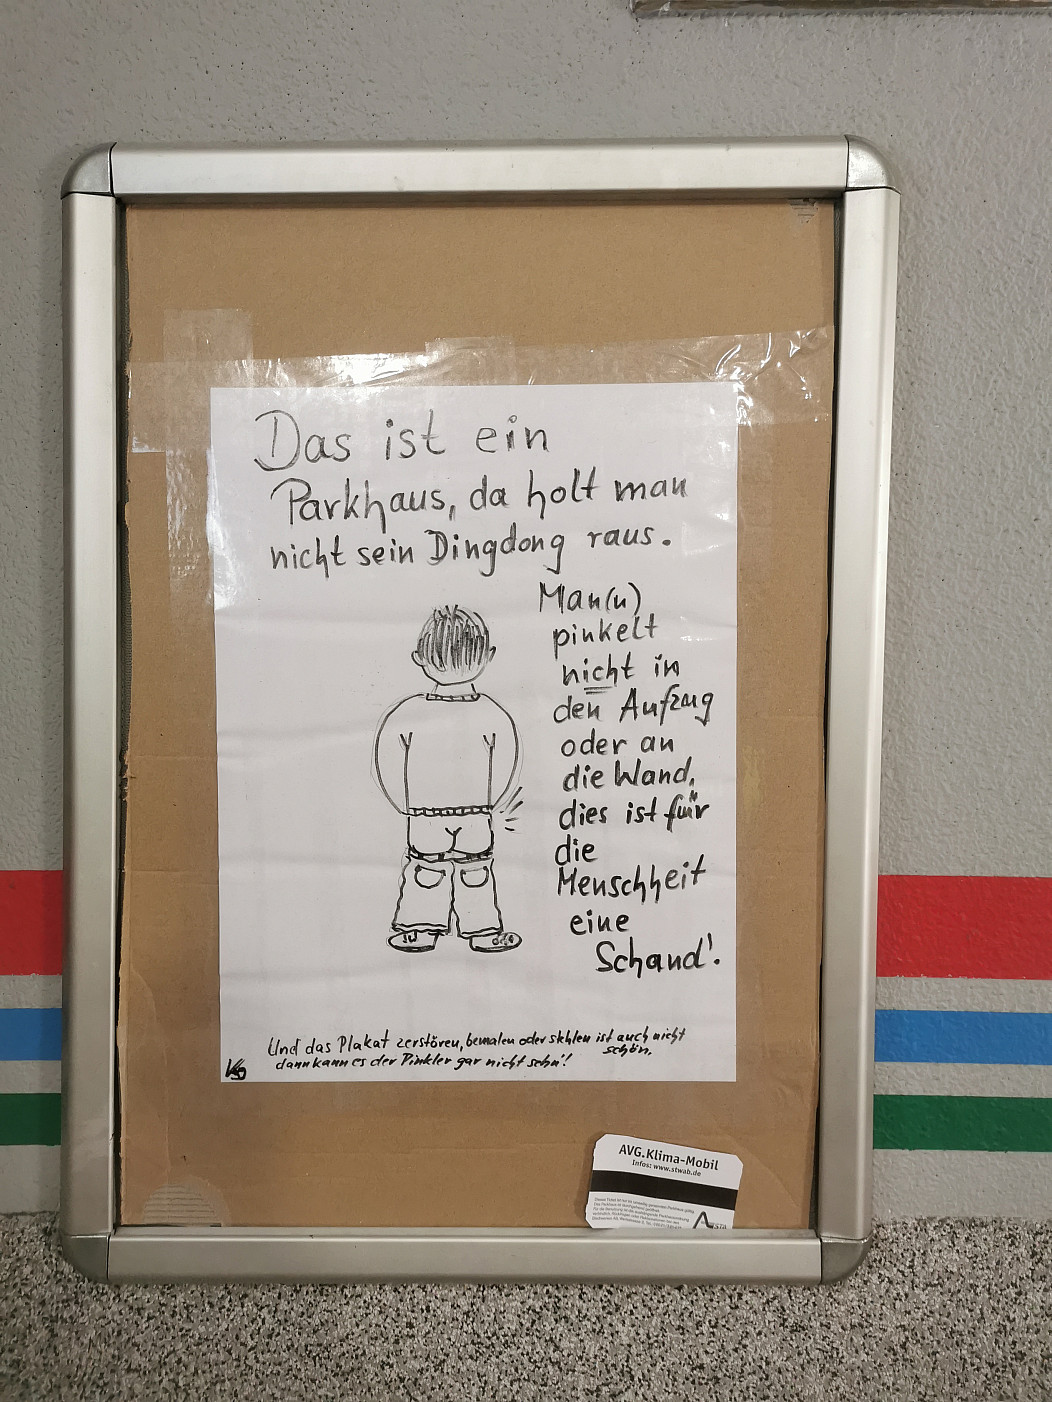 Das ist ein
Parkhaus, da holt man
nicht sein Dingdong raus.
Man(n)
pinkelt
nicht in
den Aufzug
oder an
die Wand,
dies ist für
die
Menschheit
eine
Schand'.
Und das Plakat zerstören, bemalen oder stehlen ist auch nicht
schön,
dann kann es der Pinkler gar nicht sehn'!
AVG.Klima-Mobil
Infos: www.stwab.de